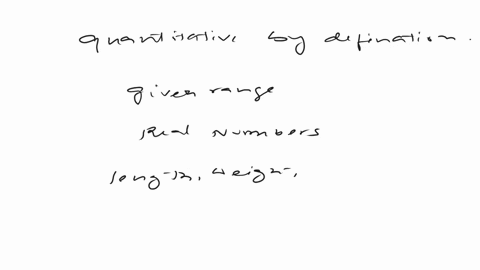 quantitative by defination.
given range
real numbers
length, weight,